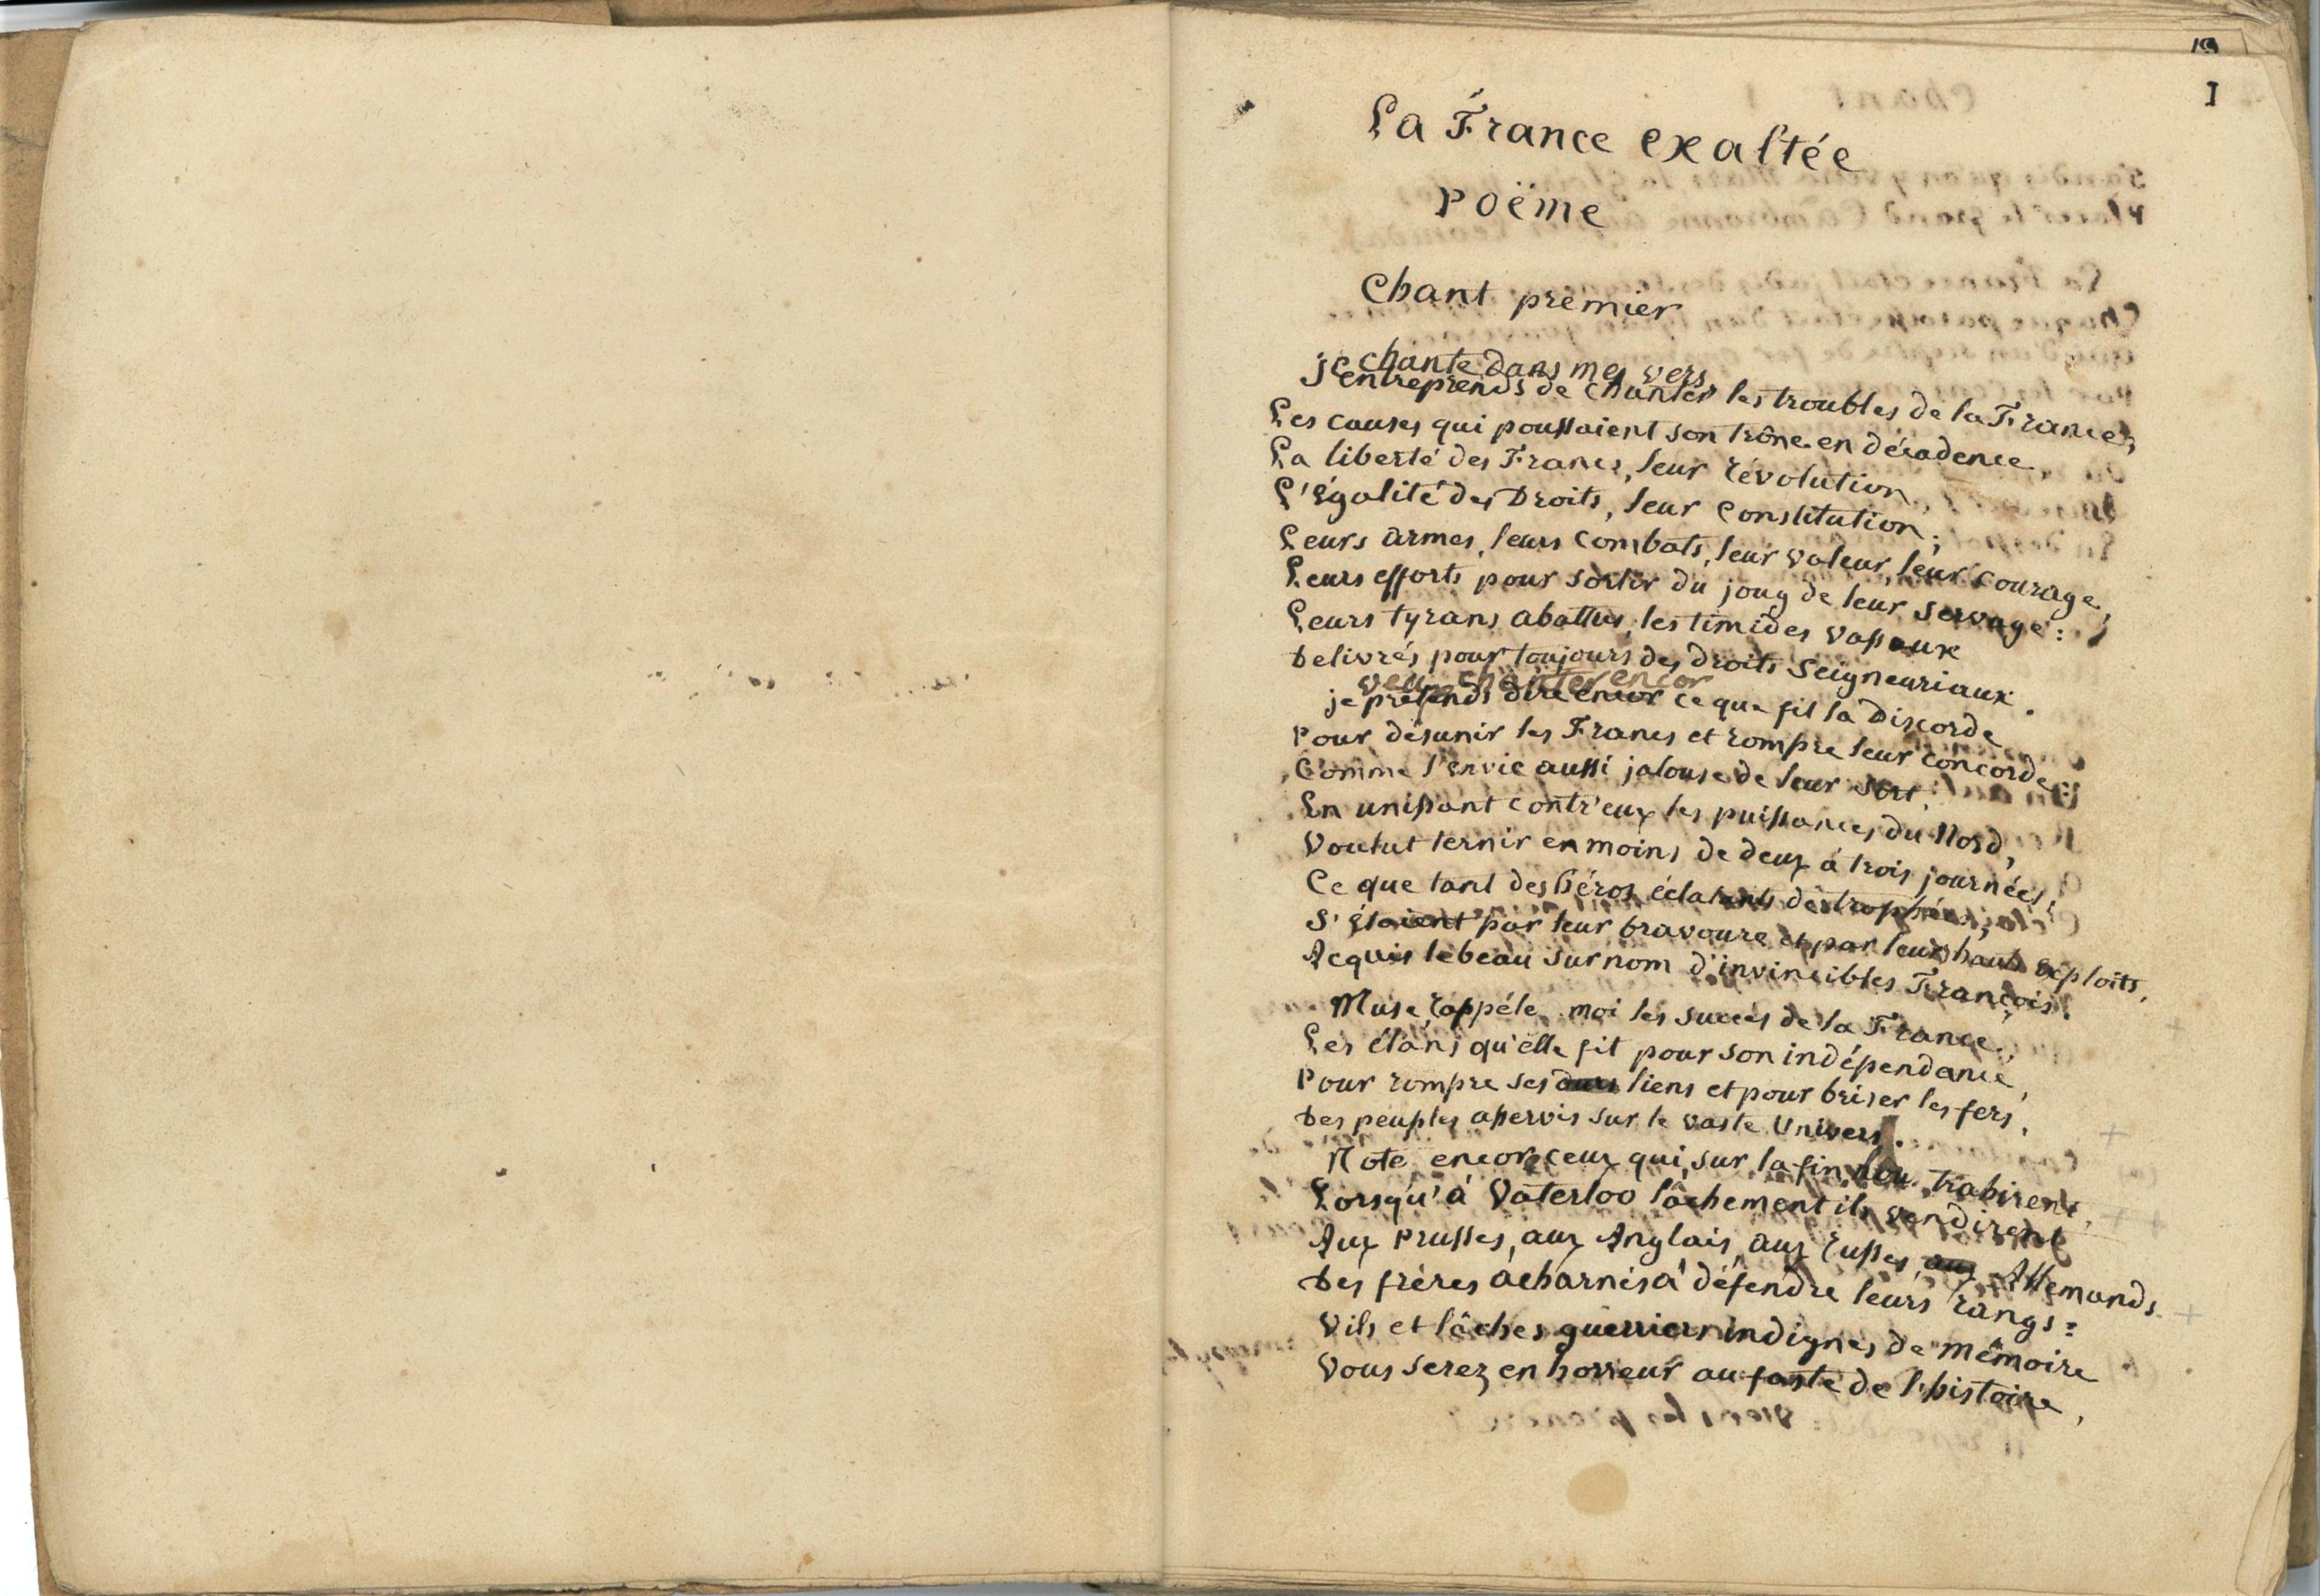 19
I
La France exaltée
Poëme
Chant premier
je chante dans mes vers
J'entreprends de chanter les troubles de la France,
Les causes qui poussaient son trône en décadence,
La liberté des Francs, leur révolution,
L'égalité des Droits, leur Constitution;
Leurs armes, leurs Combats, leur valeur, leur Courage,
Leurs efforts pour sortir du joug de leur servage:
Leurs tyrans abattus, les timides vassaux
Delivrés pour toujours des droits Seigneuriaux.
veux chanter encor
je prétends dire encor ce que fit la Discorde
Pour désunir les Francs et rompre leur concorde:
Comme l'envie aussi jalouse de leur sort,
En unissant contr'eux les puissances du Nord,
Voulut ternir en moins de deux à trois journées,
Ce que tant des héros éclatants des trophées,
S'étoient par leur bravoure et par leurs hauts exploits,
Acquis le beau surnom d'invincibles François.
Muse, rappéle moi les succès de la France,
Les élans qu'elle fit pour son indépendance,
Pour rompre ses durs liens et pour briser les fers,
Des peuples asservis sur le vaste Univers.
Note encore ceux qui, sur la fin, nou trahirent,
Lorsqu'à Vaterloo lâchement ils vendirent
Aux Prusses, aux Anglais, aux russes, aux Allemands
Des frères acharnés à défendre leurs rangs:
Vils et lâches guerriers indignes de mémoire
Vous serez en horreur au faste de l'histoire,